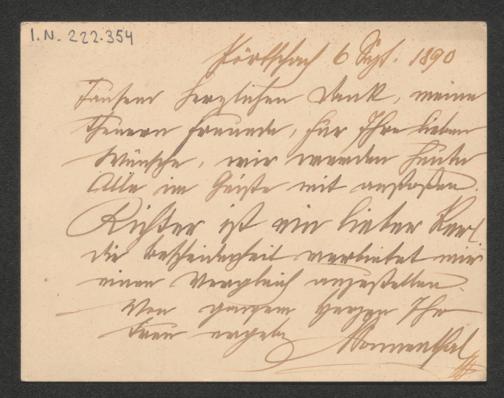 I.N. 222.354
Pörtschach 6 Sept. 1890
Tausend herzlichen Dank, meine
theuren Freunde, für Ihre lieben
Wünsche, wir werden heute
Alle im Geiste mit anstoßen.
Richter ist ein lieber Kerl.
die Bescheidenheit verbietet mir
einen Vergleich anzustellen.
Von ganzem Herzen Ihr
treu ergeb.
Sonnenthal